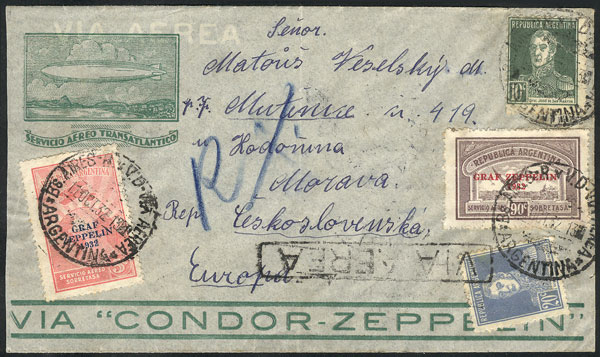 VIA AEREA
SERVICIO AÉREO TRANSATLANTICO
Señor.
Matouš Veselský m.
p.p. Mutěnice u 419.
u Hodonína
Morava.
Rep. Československá,
Europa
REPUBLICA ARGENTINA
10
REPUBLICA ARGENTINA
GRAF ZEPPELIN
1932
SERVICIO AEREO 90c SOBRETASA
GRAF
ZEPPELIN
1932
SERVICIO AEREO
SOBRETASA
BS. AIRES
VIA AEREA
ARGENTINA
ARGENTINA
ARGENTINA
VIA AEREA
20
VIA "CONDOR-ZEPPELIN"